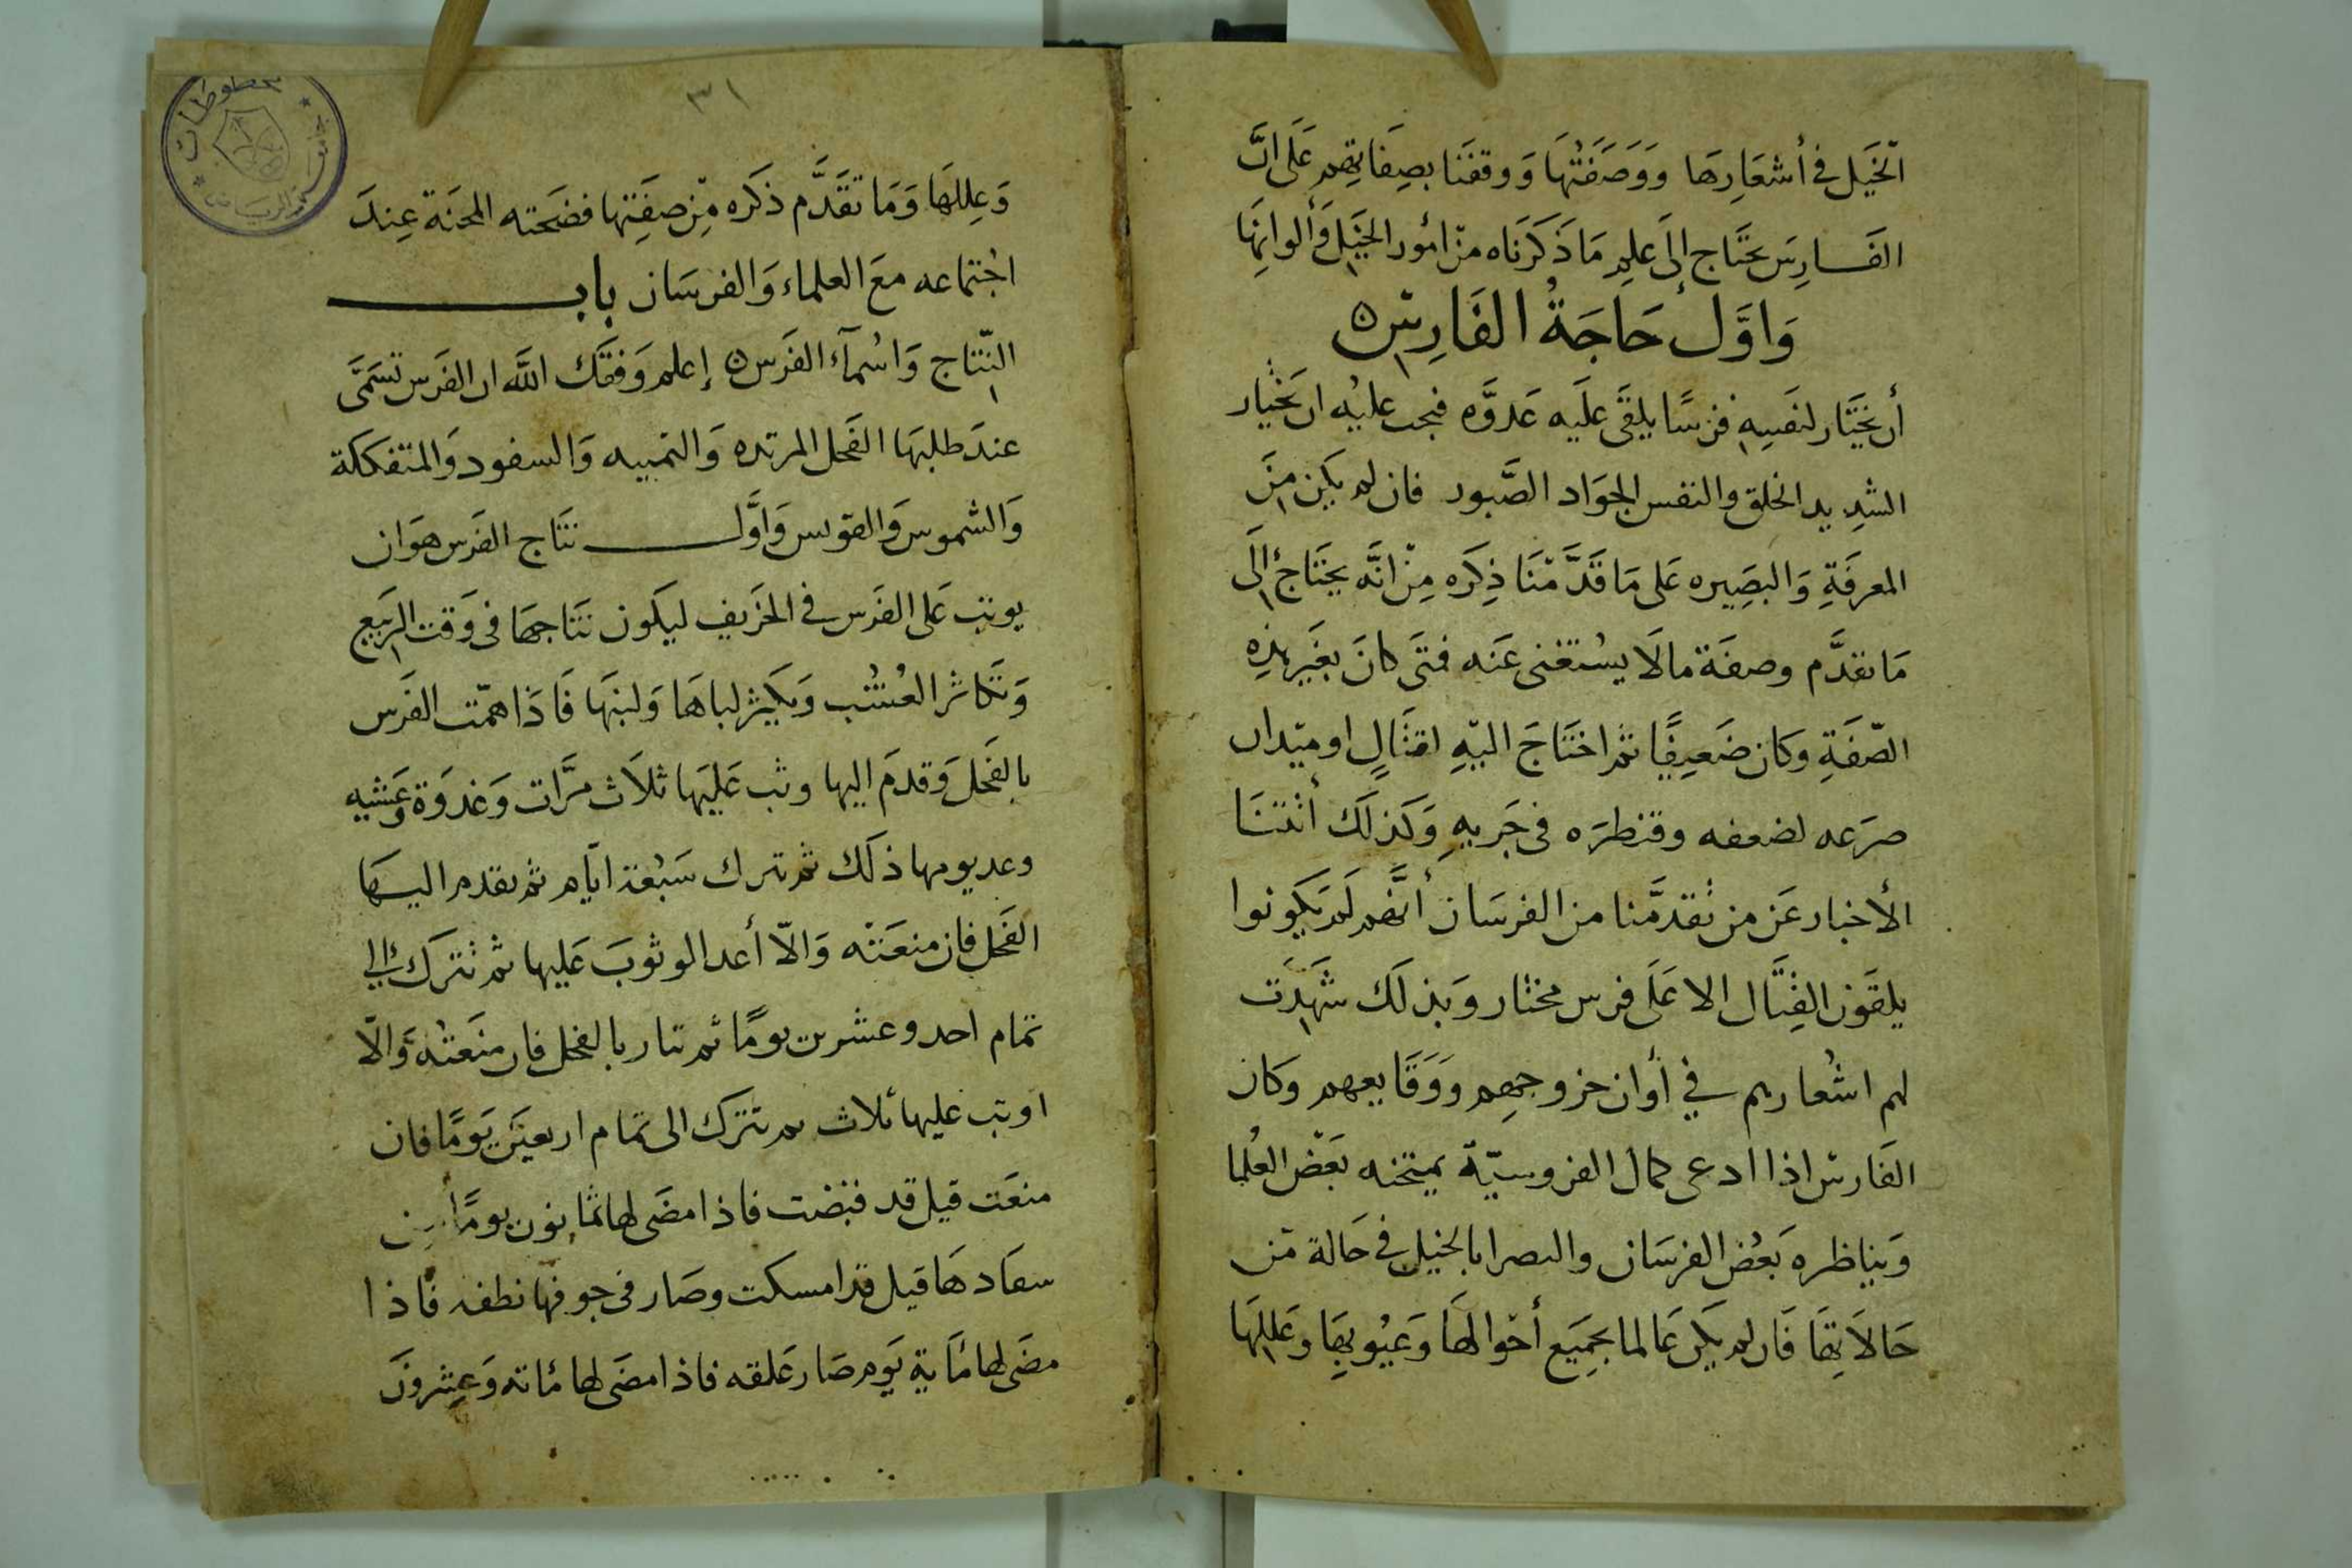 الخَيل في أشعَارِهَا وَوَصَفَتْهَا وَوقفَنا بصِفَاتِهم عَلَى انَّ
الفَارِسَ يحتَاج إلىَ علمِ مَا ذَكَرنَاه منْ امُور الخيَل وَألوانِهَا
وَاوَّل حَاجَةُ الفَارِسْ ۞
أن يختَار لنفسِهِ فرسًا يلقَى علَيه عَدوَّه فيجب عليْه ان يختَار
الشدِيد الخلق والنفس الجوَاد الصَّبور فان لم يكن مِنَ
المعرفَةِ وَالبصِيره عَلى مَا قَدَّمْنَا ذِكَره مِنْ انَّه يحتَاجُ إلَى
مَا تقدَّم وصفَة مالَا يسْتغنى عَنه فمتَى كانَ بغَير هذِهِ
الصّفَةِ وكان ضَعيفًا ثم احتَاجَ اليْهِ لقتَالٍ او ميْدان
صرَعه لضعفه وقنطرَه فى جَريهِ وَكذلَك أتتنَا
الأخبار عَن من تقدمَّنا من الفرسَان أنَّهم لَم يَكونوا
يلقَون القِتَال الا عَلَى فرس مختار وَبذلَك شَهِدَت
لهم اشْعارهم في أوان خروجهِم وَوَقَايعهم وكان
الفَارسْ اذا ادعى كمال الفروسيّة يمتحنه بَعْض العُلما
وَيناظره بَعْض الفرسَان والبصرا بالخيل في حَالة مْن
حَالاَتِهَا فَان لم يكن عَالما بجمِيَع أحْوالَهَا وَعيُوبِهَا وعَللِهَا
٣١
وَعِللهَا وَمَا تقَدَّم ذكَره مِّن صفَتِها فضَحته المحنَة عِندَ
اجْتماعه معَ العلماء وَالفرسَان بابـ
النّتاج وَاسْمآء الفَرس ۞ إعلم وَفقَّك اللَّه ان الفَرس تسَمَّى
عندَ طلبهَا الفَحل المرتده وَالتمبيه وَالسفود وَالمتفككة
وَالشموس وَالقوس وَاوَّل نتَاج الفَرس هوَان
يوثب عَلى الفَرس في الخَريف ليكَون نتَاجهَا فى وَقت الرَبيع
وَتكَاثر العُشْب وَيكثر لباهَا وَلبنهَا فَاذَا همّت الفَرس
بالفَحل وَقدمَ اليها وثب عَليَها ثلاَث مرَّات وَغدوَة وَعَشيه
وعد يومها ذلَك ثم ترك سَبْعة ايّام ثم يقدم اليهَا
الفَحل فان منعَتْه وَالاّ أعد الوثوبَ عَليها ثم تترَك إلى
تمام احد وعشرين يومًا ثم تبار بالفحل فان منَعتْهُ وَالاّ
اوثب عليها ثلاث ثم تترَك الى تمام اربعيَن يَومًا فان
منعَت قيل قد قبضت فاذا مضَى لها ثمَانون يومًا من
سفَادهَا قيل قَد امسكت وصَار فى جوفهَا نطفه فاذا
مضَى لها مَاية يَوم صَار عَلقه فاذا مضَى لها مَاته وَعِشرونَ